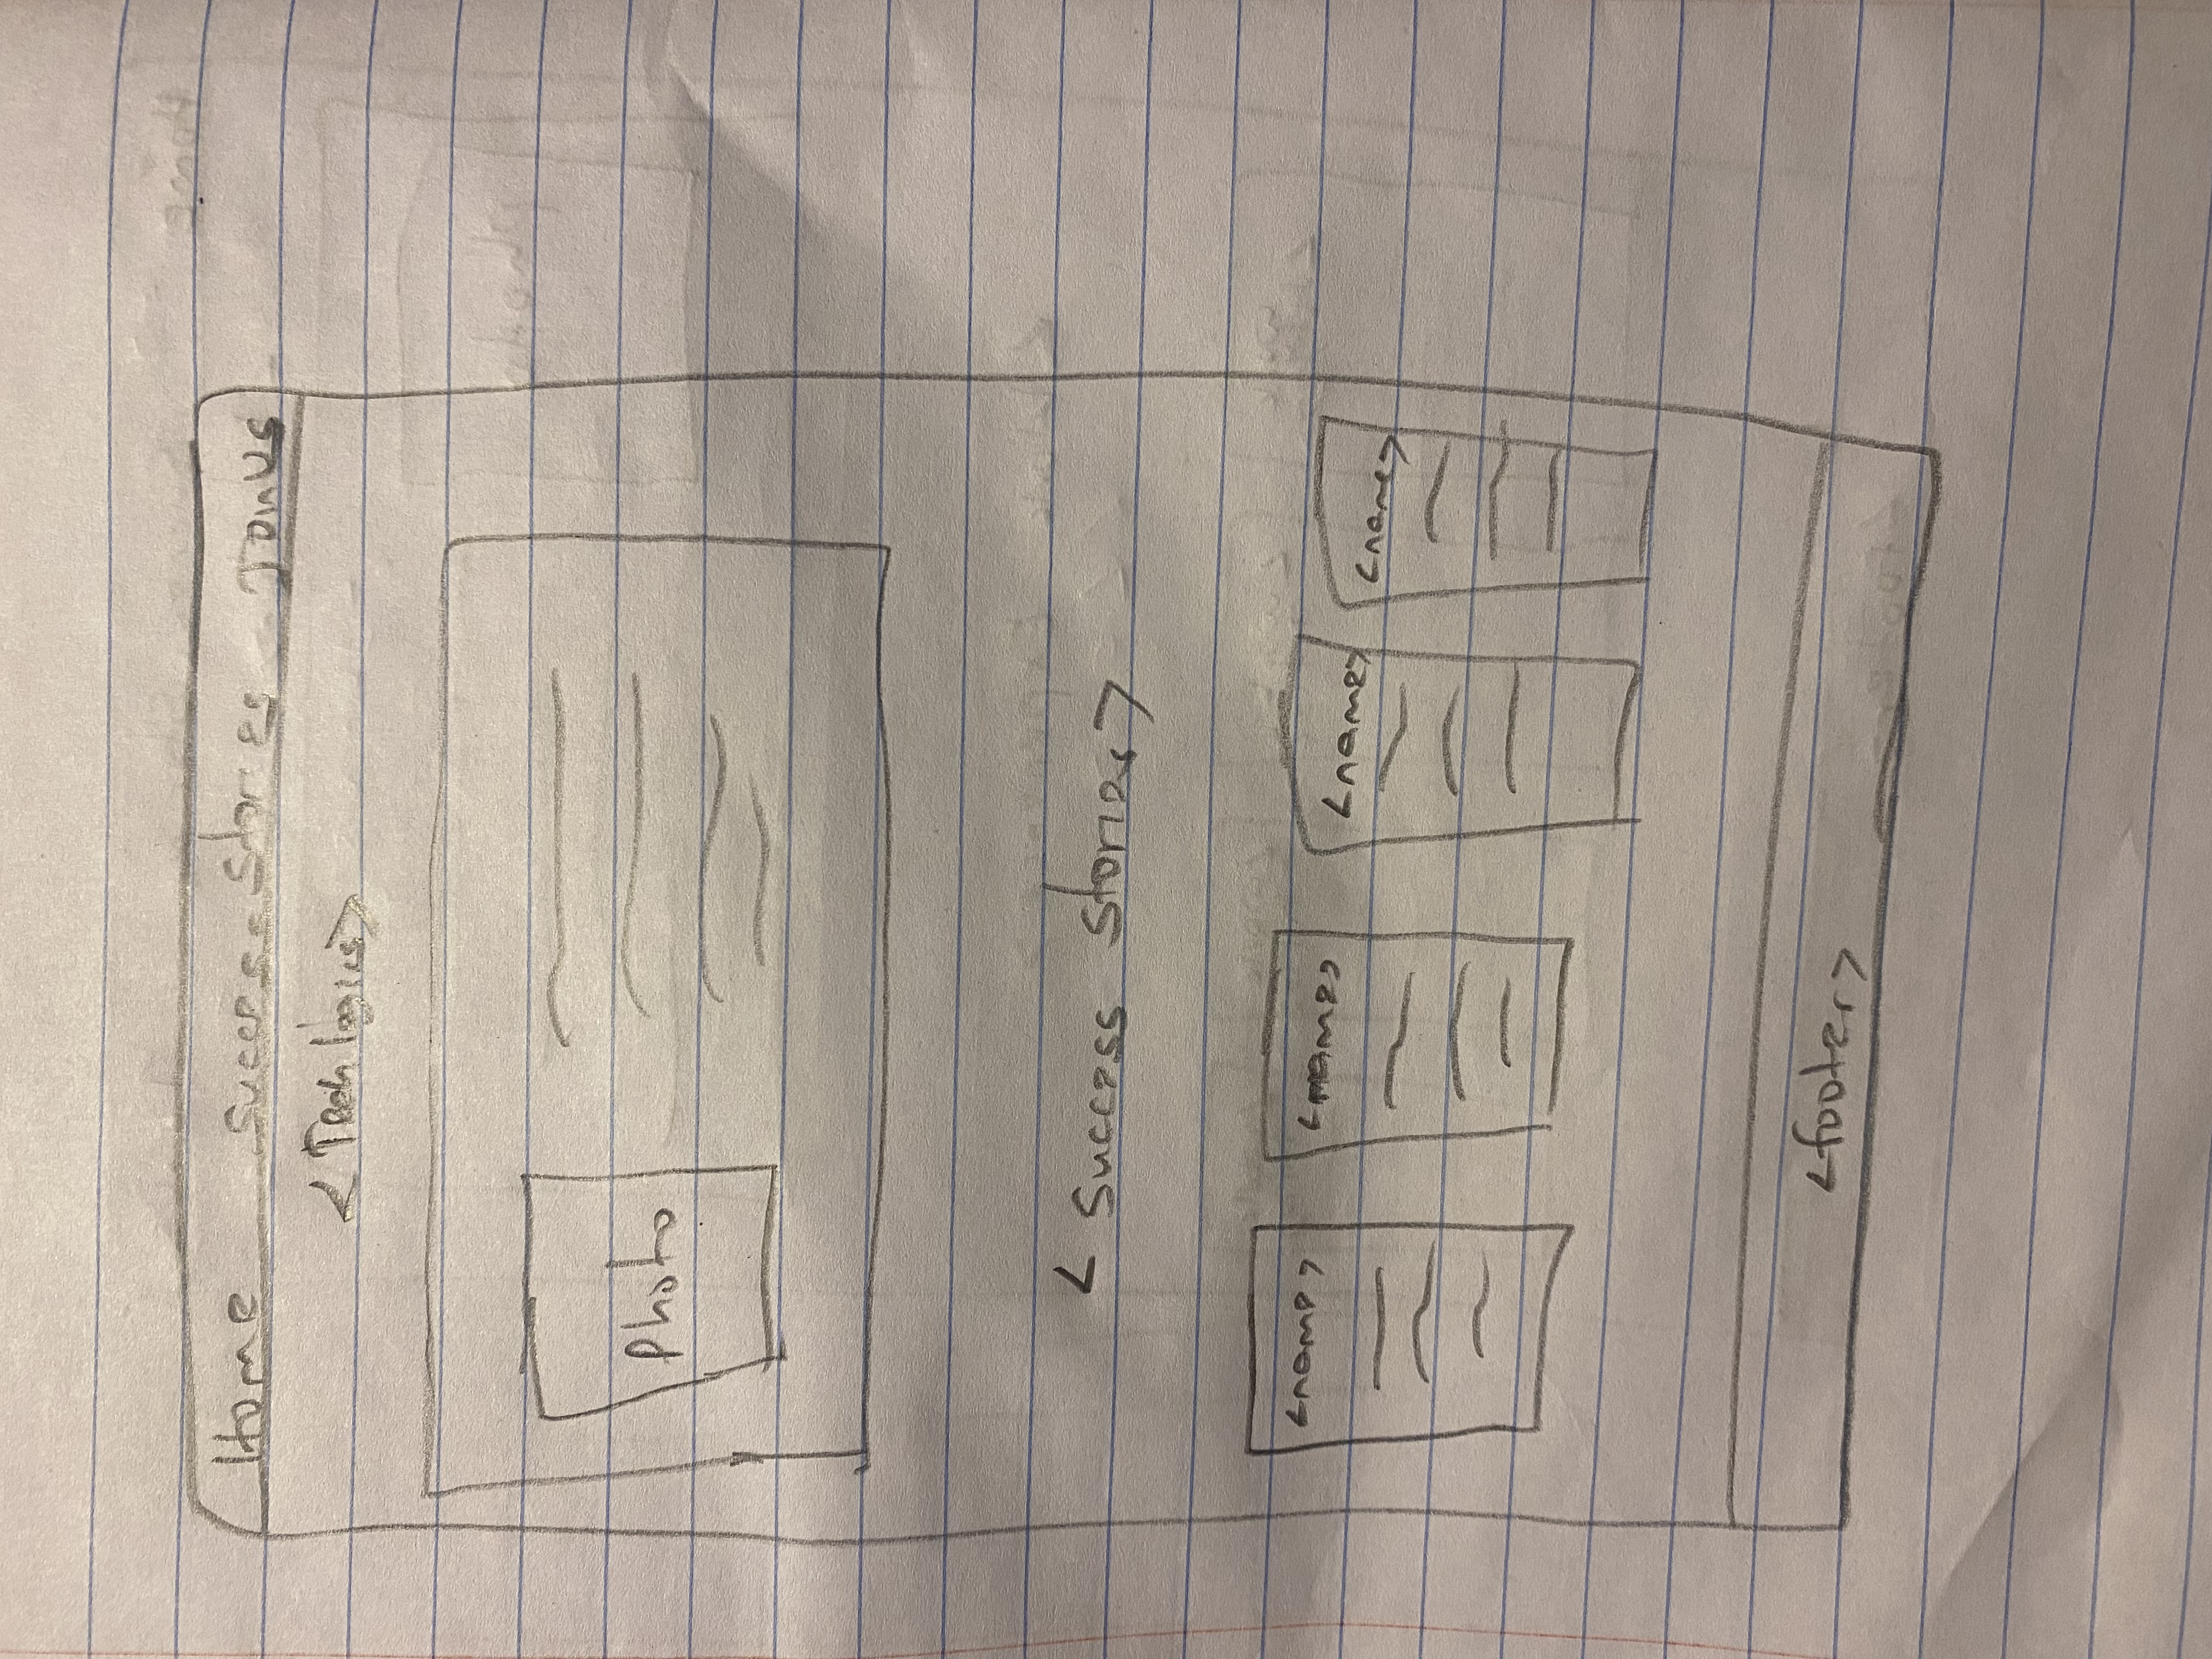 Home Success Stories Join Us
<Tech logics>
Photo
< Success Stories>
<name> <name> <name> <name>
<footer>